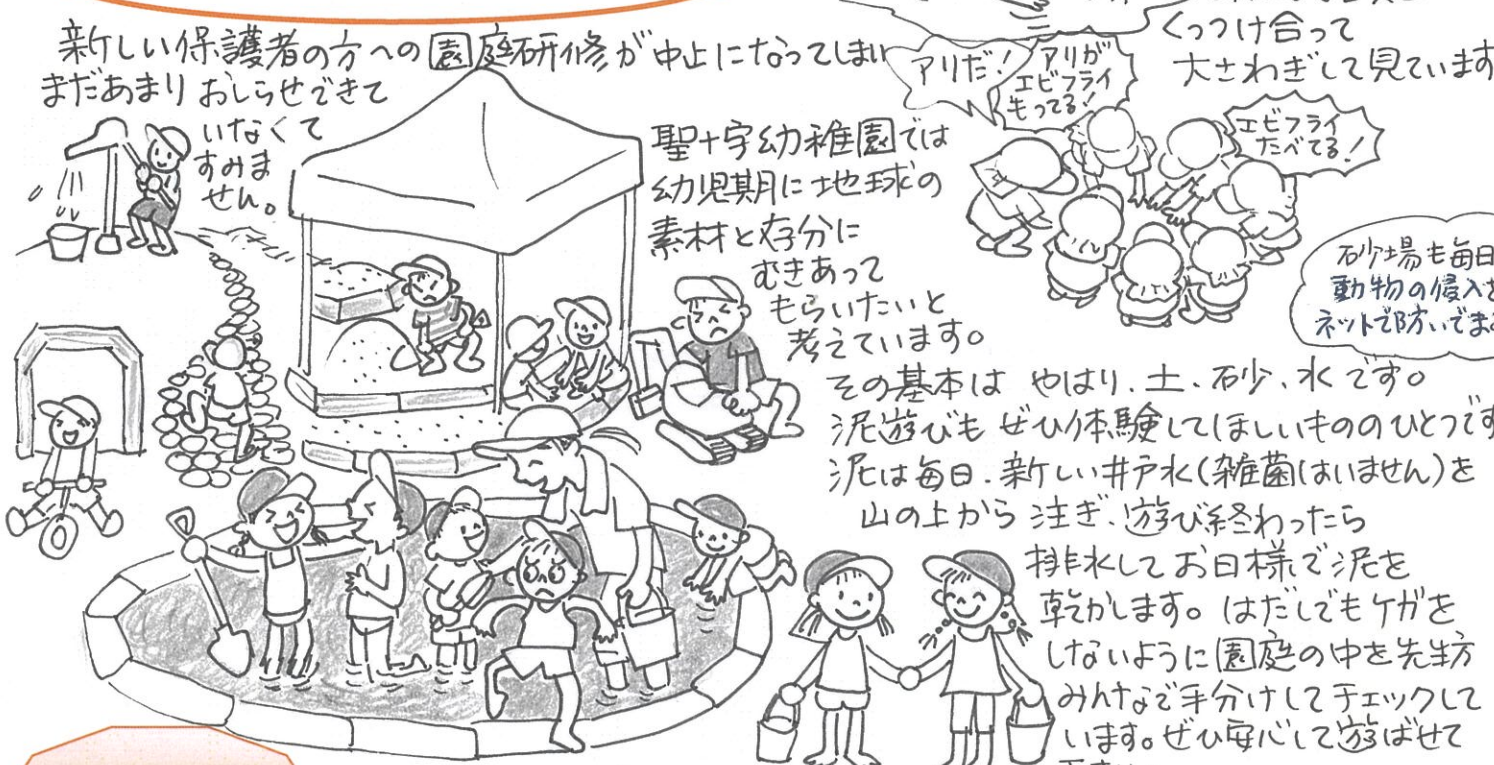 新しい保護者の方への園庭研修が中止になってしまい
まだあまりおしらせできて
いなくて
すみま
せん。
くっつけ合って
大さわぎして見ています
アリだ!
アリが
エビフライ
もってる!
エビフライ
たべてる!
聖十字幼稚園では
幼児期に地球の
素材と存分に
むきあって
もらいたいと
考えています。
砂場も毎日
動物の侵入を
ネットで防いでま
その基本は やはり、土、砂、水です。
泥遊びも ぜひ体験してほしいもののひとつです
泥は毎日、新しい井戸水(雑菌はいません)を
山の上から 注ぎ、遊び終わったら
排水してお日様で泥を
乾かします。はだしでもケガを
しないように園庭の中を先生方
みんなで手分けしてチェックして
います。ぜひ安心して遊ばせて